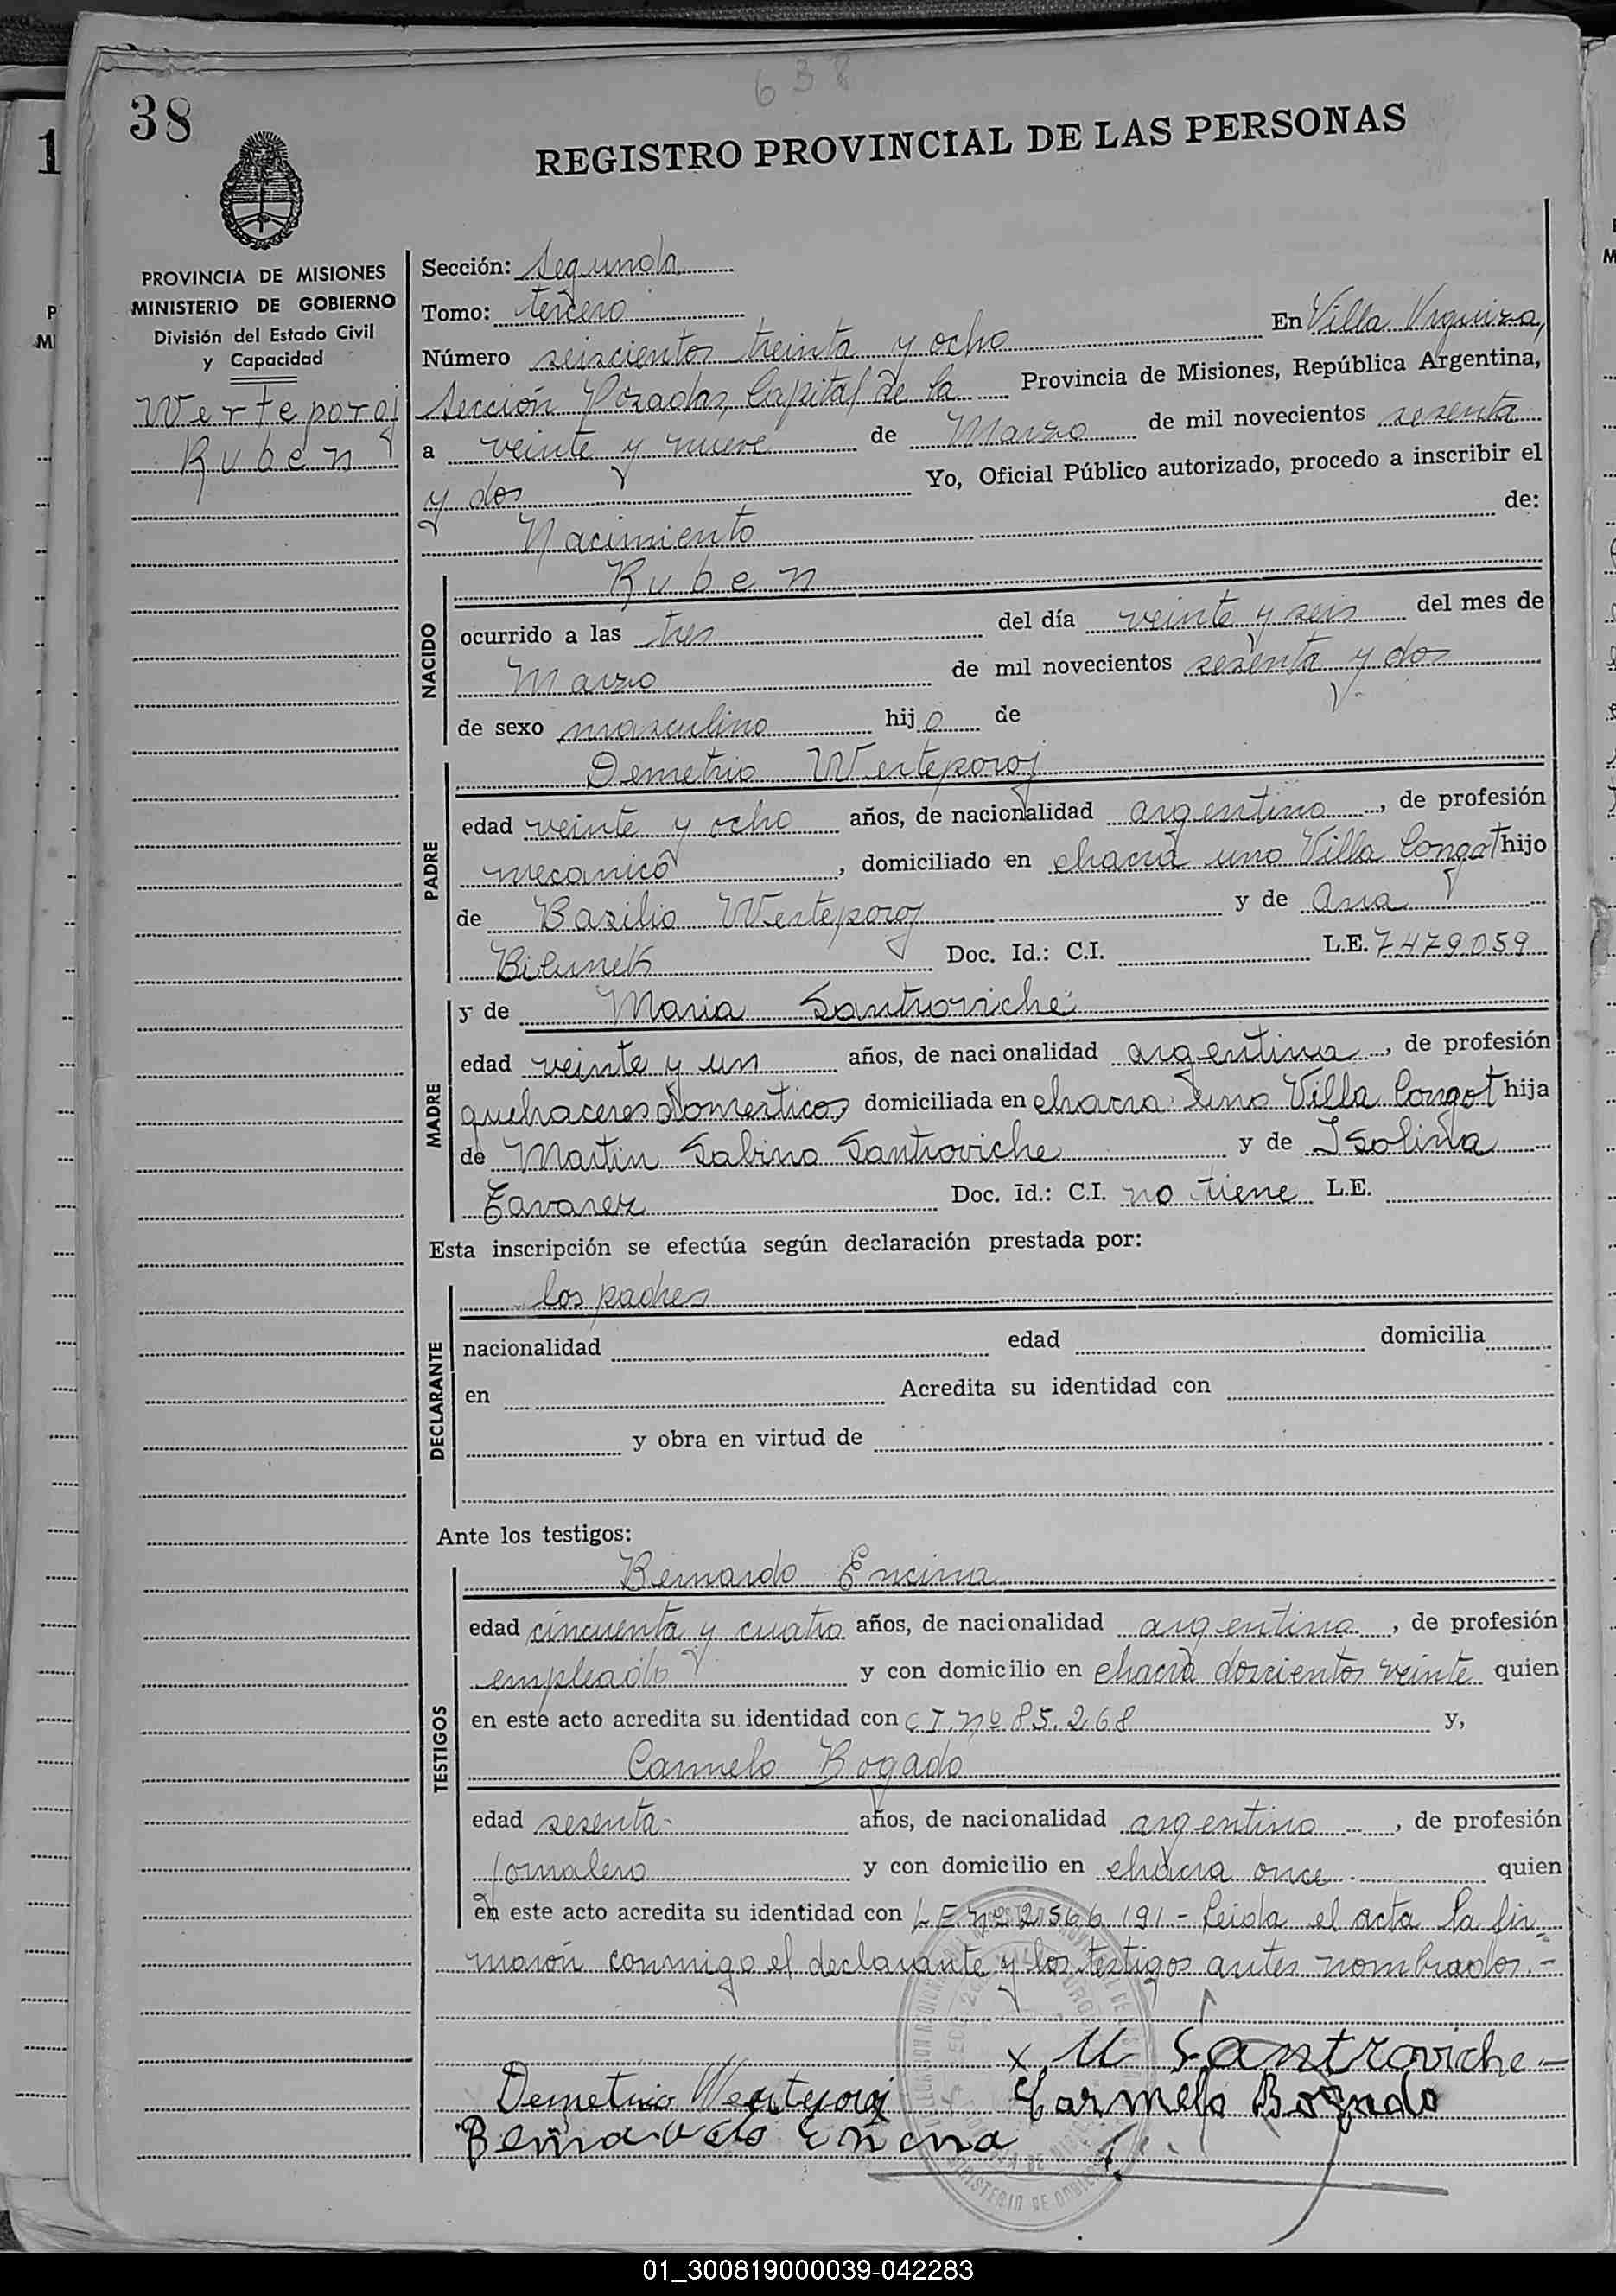 638
38
REGISTRO PROVINCIAL DE LAS PERSONAS
PROVINCIA DE MISIONES
MINISTERIO DE GOBIERNO
División del Estado Civil
y Capacidad
Werteporoj
Ruben
Sección: Segunda
Tomo: tercero
Número seiscientos treinta y ocho En Villa Urquiza,
Sección Posadas, Capital de la Provincia de Misiones, República Argentina,
a veinte y nueve de Marzo de mil novecientos sesenta
y dos Yo, Oficial Público autorizado, procedo a inscribir el
Nacimiento de:
NACIDO
Ruben
ocurrido a las tres del día veinte y seis del mes de
Marzo de mil novecientos sesenta y dos
de sexo masculino hijo de
PADRE
Demetrio Werteporoj
edad veinte y ocho años, de nacionalidad argentina, de profesión
mecanico, domiciliado en chacra uno Villa Longot hijo
de Basilio Werteporoj y de Ana
Bilunek Doc. Id.: C.I. L.E. 7479059
MADRE
y de Maria Santroviche
edad veinte y un años, de nacionalidad argentina, de profesión
quehaceres domesticos, domiciliada en chacra uno Villa Longot hija
de Martin Sabino Santroviche y de Isolina
Tavarez Doc. Id.: C.I. no tiene L.E.
Esta inscripción se efectúa según declaración prestada por:
DECLARANTE
los padres
nacionalidad edad domicilia
en Acredita su identidad con
y obra en virtud de
Ante los testigos:
TESTIGOS
Bernardo Encina
edad cincuenta y cuatro años, de nacionalidad argentina, de profesión
empleado y con domicilio en chacra doscientos veinte quien
en este acto acredita su identidad con C I. nº 85.268 y,
Carmelo Bogado
edad sesenta años, de nacionalidad argentino, de profesión
jornalero y con domicilio en chacra once quien
en este acto acredita su identidad con L.E. nº 2566191 - Leida el acta la fir
maron conmigo el declarante y los testigos antes nombrados.-
x M Santroviche
Demetrio Werteporoj Carmelo Bogado
Bernardo Encina
01_300819000039-042283